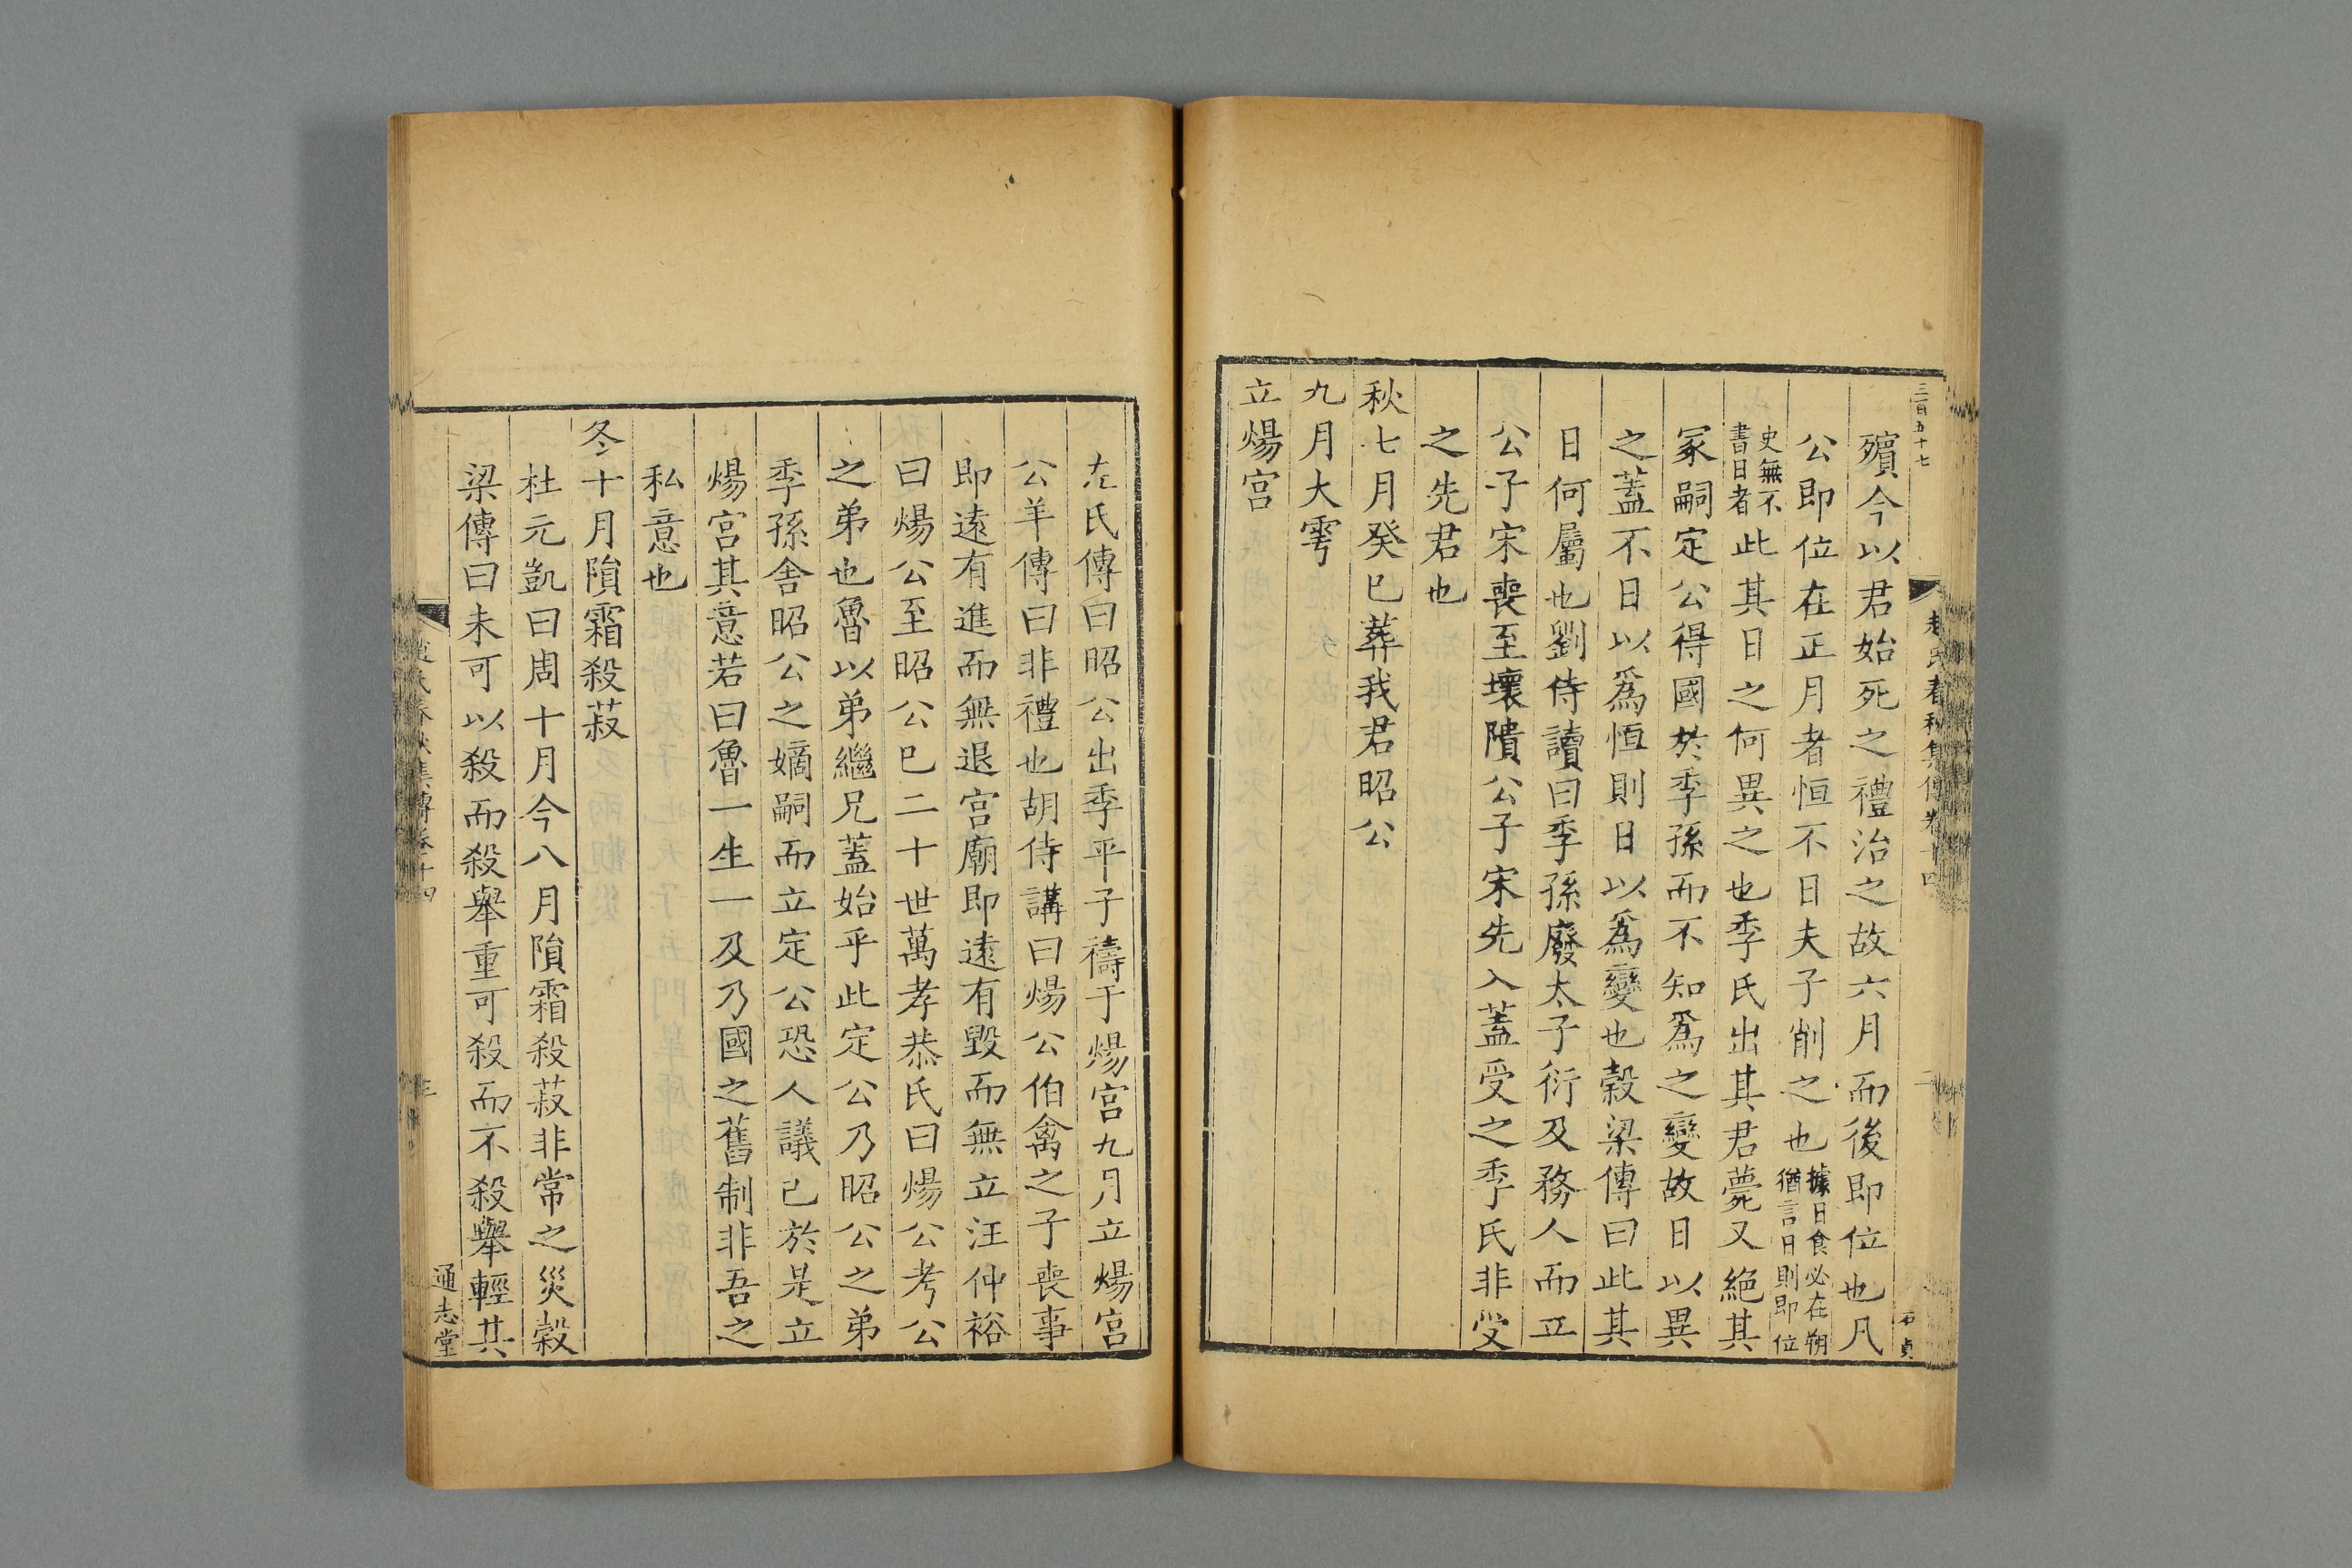 三百五十七
趙氏春秋集傳卷十四
二
石貞
殯今以君始死之禮治之故六月而後即位也凡
公即位在正月者恒不日夫子削之也據日食必在朔
猶言日則即位
史無不
書日者此其日之何異之也季氏出其君薨又絕其
冢嗣定公得國於季孫而不知爲之變故日以異
之蓋不日以爲恒則日以爲變也穀梁傳曰此其
日何屬也劉侍讀曰季孫廢太子衍及務人而立
公子宋喪至壞隤公子宋先入蓋受之季氏非受
之先君也
秋七月癸巳葬我君昭公
九月大雩
立煬宮
左氏傳曰昭公出季平子禱于煬宮九月立煬宮
公羊傳曰非禮也胡侍講曰煬公伯禽之子喪事
即遠有進而無退宮廟即遠有毀而無立汪仲裕
曰煬公至昭公已二十世萬孝恭氏曰煬公考公
之弟也魯以弟繼兄蓋始乎此定公乃昭公之弟
季孫舍昭公之嫡嗣而立定公恐人議己於是立
煬宮其意若曰魯一生一及乃國之舊制非吾之
私意也
冬十月隕霜殺菽
杜元凱曰周十月今八月隕霜殺菽非常之災穀
梁傳曰未可以殺而殺舉重可殺而不殺舉輕其
趙氏春秋集傳卷十四
三
通志堂